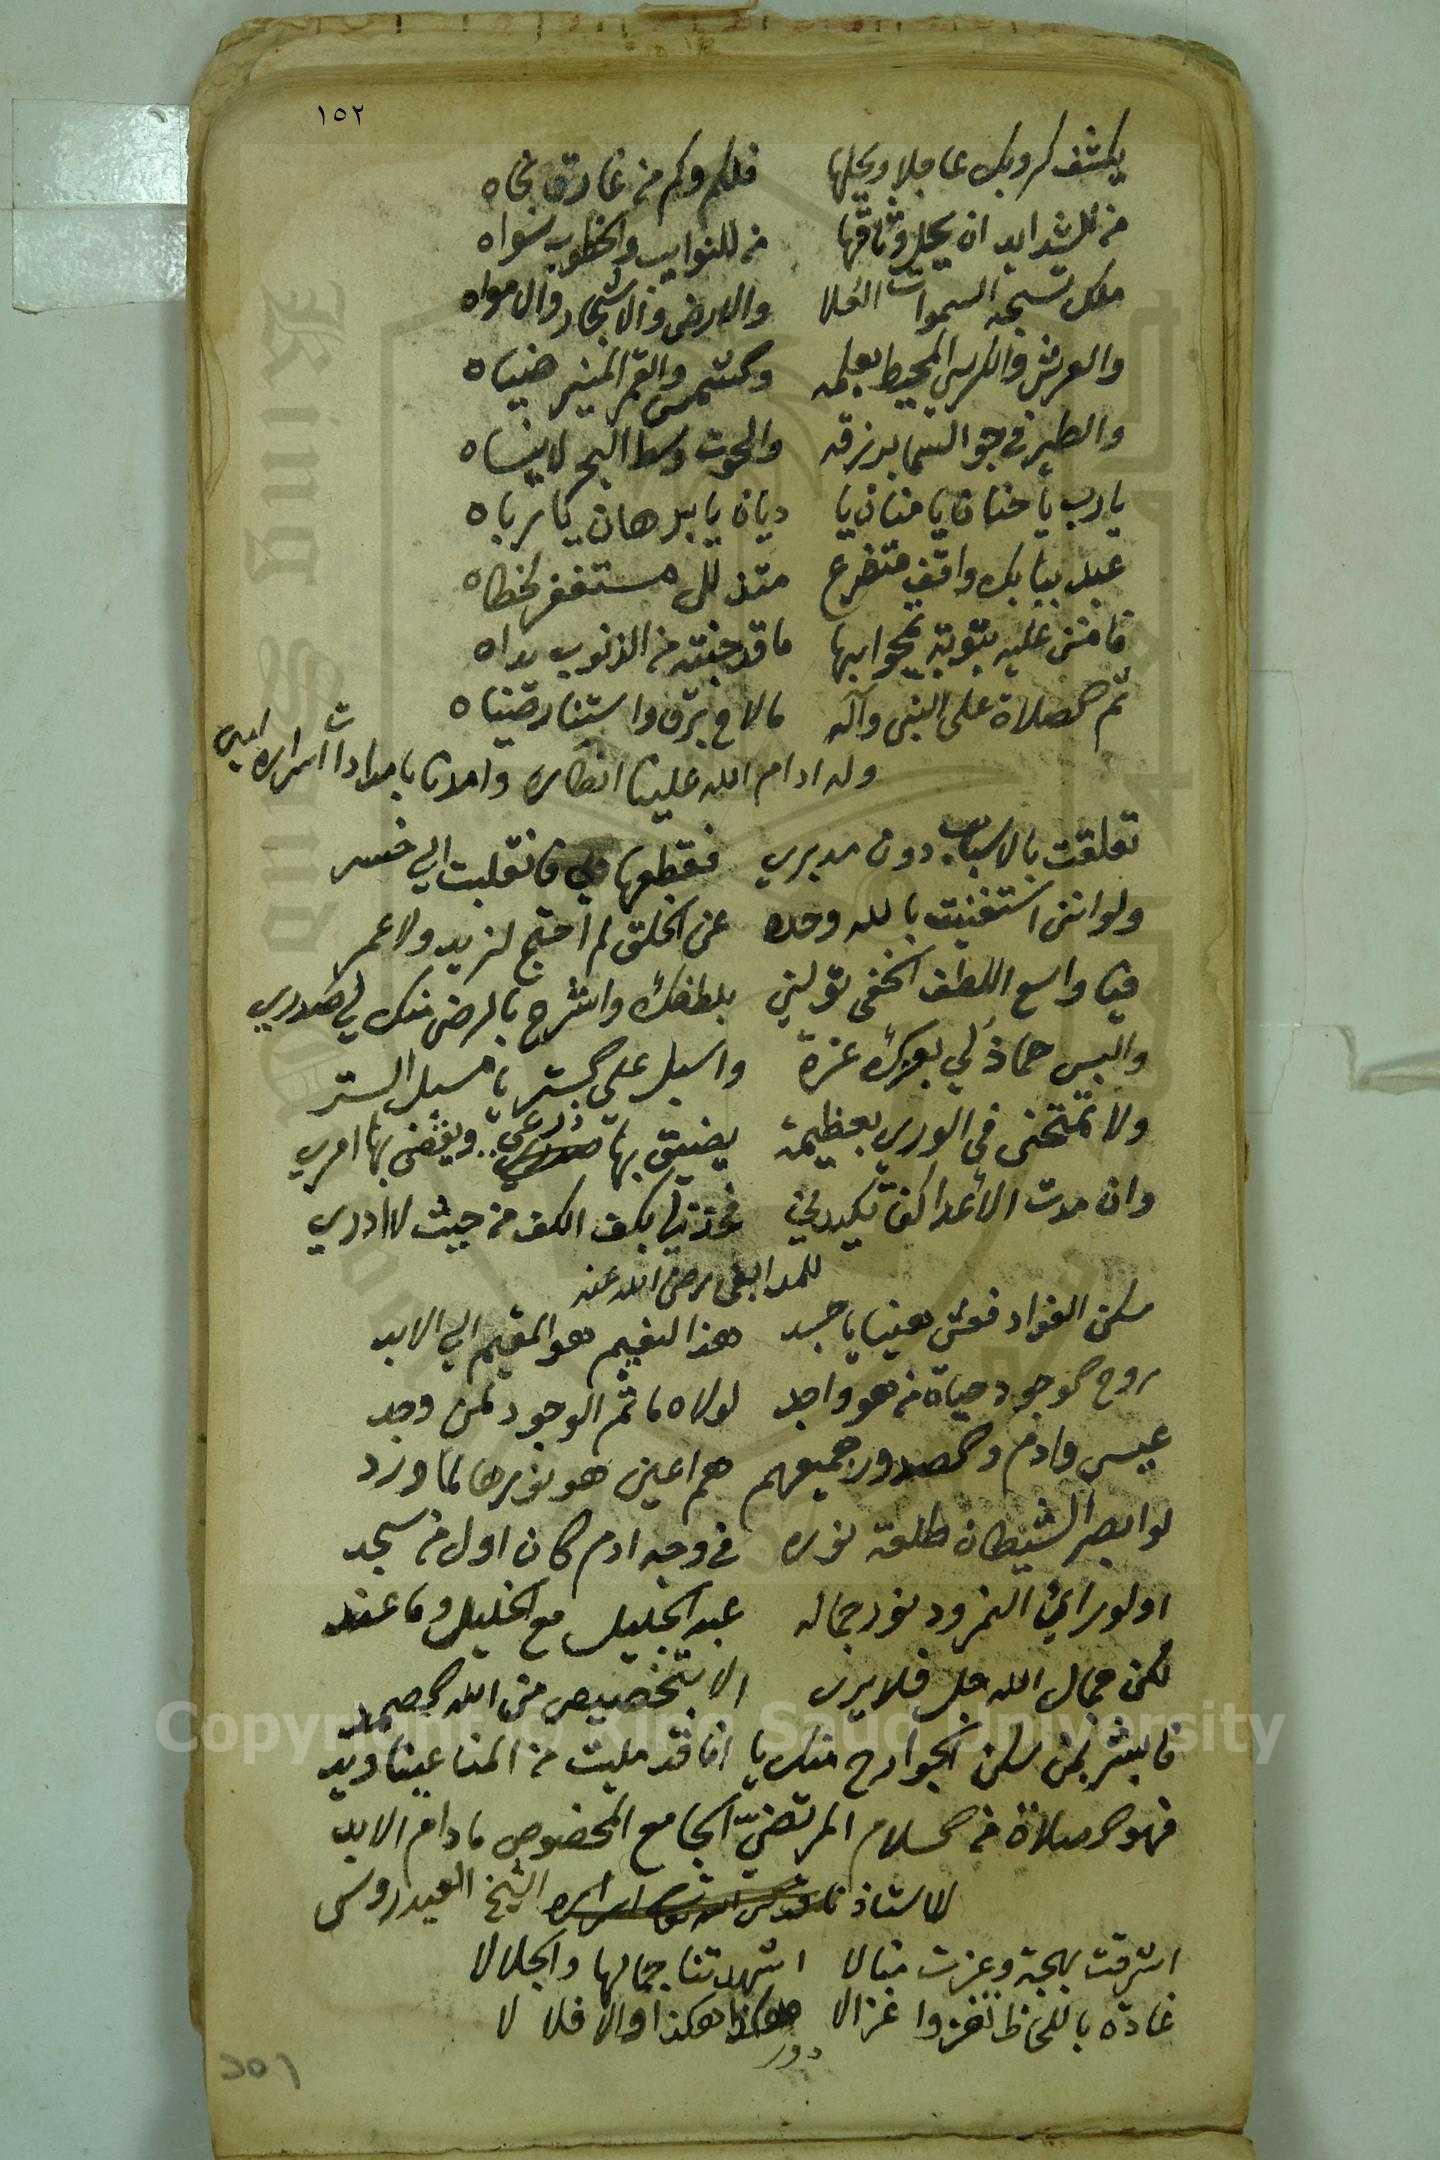 ١٥٢
يكشف كروبك عاجلا ويحلها فلكم وكم من غارق نجاه
من للشدايد ان يحل وثاقها من للنوايب والخطوب سواه
ملك تسبحه السموات العلا والارض والاشجار والامواه
والعرش والكرسي المحيط بعلمه والشمس والقمر المنير ضياه
والطير في جو السما يرزقه والحوت وسط البحر لا ينساه
يارب يا حنان يا منان يا ديان يا برهان يا رباه
عبد ببابك واقف متضرع متذلل مستغفر لخطاه
فامنن عليه بتوبة تمحوا بها ما قد جنته من الذنوب يداه
ثم الصلاة على النبي وآله مالاح برق واستنار ضياه
وله ادام الله علينا انظاره وامدنا بامدادات اسراره امين
تعلقت بالاسباب دون مدبري فقطعها بي فانقلبت الي خسر
ولو انني استغنيت بالله وحده عن الخلق لم احتج لزيد ولا عمر
فيا واسع اللطف الخفي تولني بلطفك واشرح بالرضى منك لي صدري
والبس حماذلي بعزك عزة واسبل علي الستر يا مسبل الستر
ولا تمتحني في الورى بعظيمة يضيق بها ذرعي ويفضي بها امري
وان مدت الاعدا كفا تكيدني فخذني بكف الكف من حيث لا ادري
للمدابغي رضي الله عنه
سكن الفواد فعش هنيا يا جسد هذا النعيم هو المقيم الي الابد
روح الوجود حياة من هو واجد لولاه ما تم الوجود لمن وجد
عيسى وادم والصدور جميعهم هم اعين هو نورها لما ورد
لو ابصر الشيطان طلعة نوره في وجه ادم كان اول من سجد
او لو راي النمرود نور جماله عبد الجليل مع الخليل وما عند
لكن جمال الله جل فلا يرى الا بتخصيص من الله الصمد
فابشر بمن سكن الجوارح منك يا انا قد مليت من المنا عينا ويد
فهو الصلاة من السلام المرتضي الجامع المخصوص مادام الابد
للاستاذ الشيخ العيدروسي
اشرقت بهجة وعزت منالا اشهدتنا جمالها والجلالا
غادة باللحاظ تغزوا غزالا هكذا هكذا والا فلا لا
دور
١٥٢